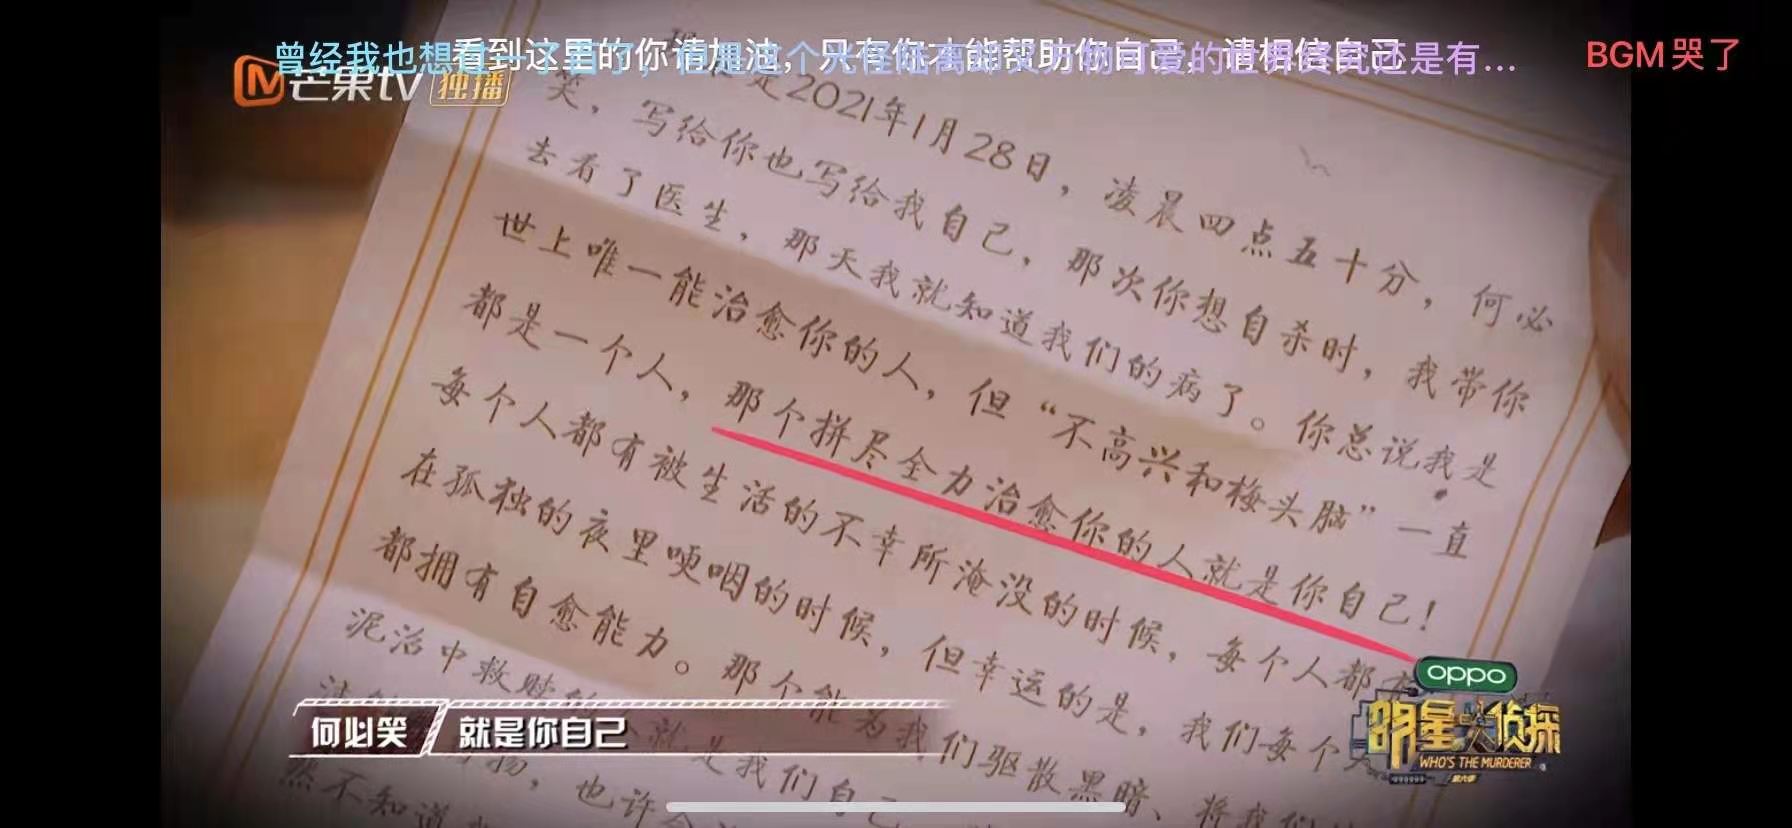 看到这里的你请加油，只有你才能帮助你自己，请相信自己
曾经我也想过一了百了，但是这个光怪陆离却又万物可爱的世界终究还是有...
BGM哭了
芒果tv 独播
是2021年1月28日，凌晨四点五十分，何必
笑，写给你也写给我自己，那次你想自杀时，我带你
去看了医生，那天我就知道我们的病了。你总说我是
世上唯一能治愈你的人，但“不高兴和梅头脑”一直
都是一个人，那个拼尽全力治愈你的人就是你自己！
每个人都有被生活的不幸所淹没的时候，每个人都有
在孤独的夜里哽咽的时候，但幸运的是，我们每个人
都拥有自愈能力。那个能为我们驱散黑暗、将我们
泥沼中救赎的 就是我们自己
物，也许会
然不知道
何必笑 就是你自己
oppo
明星大侦探
WHO'S THE MURDERER
第六季